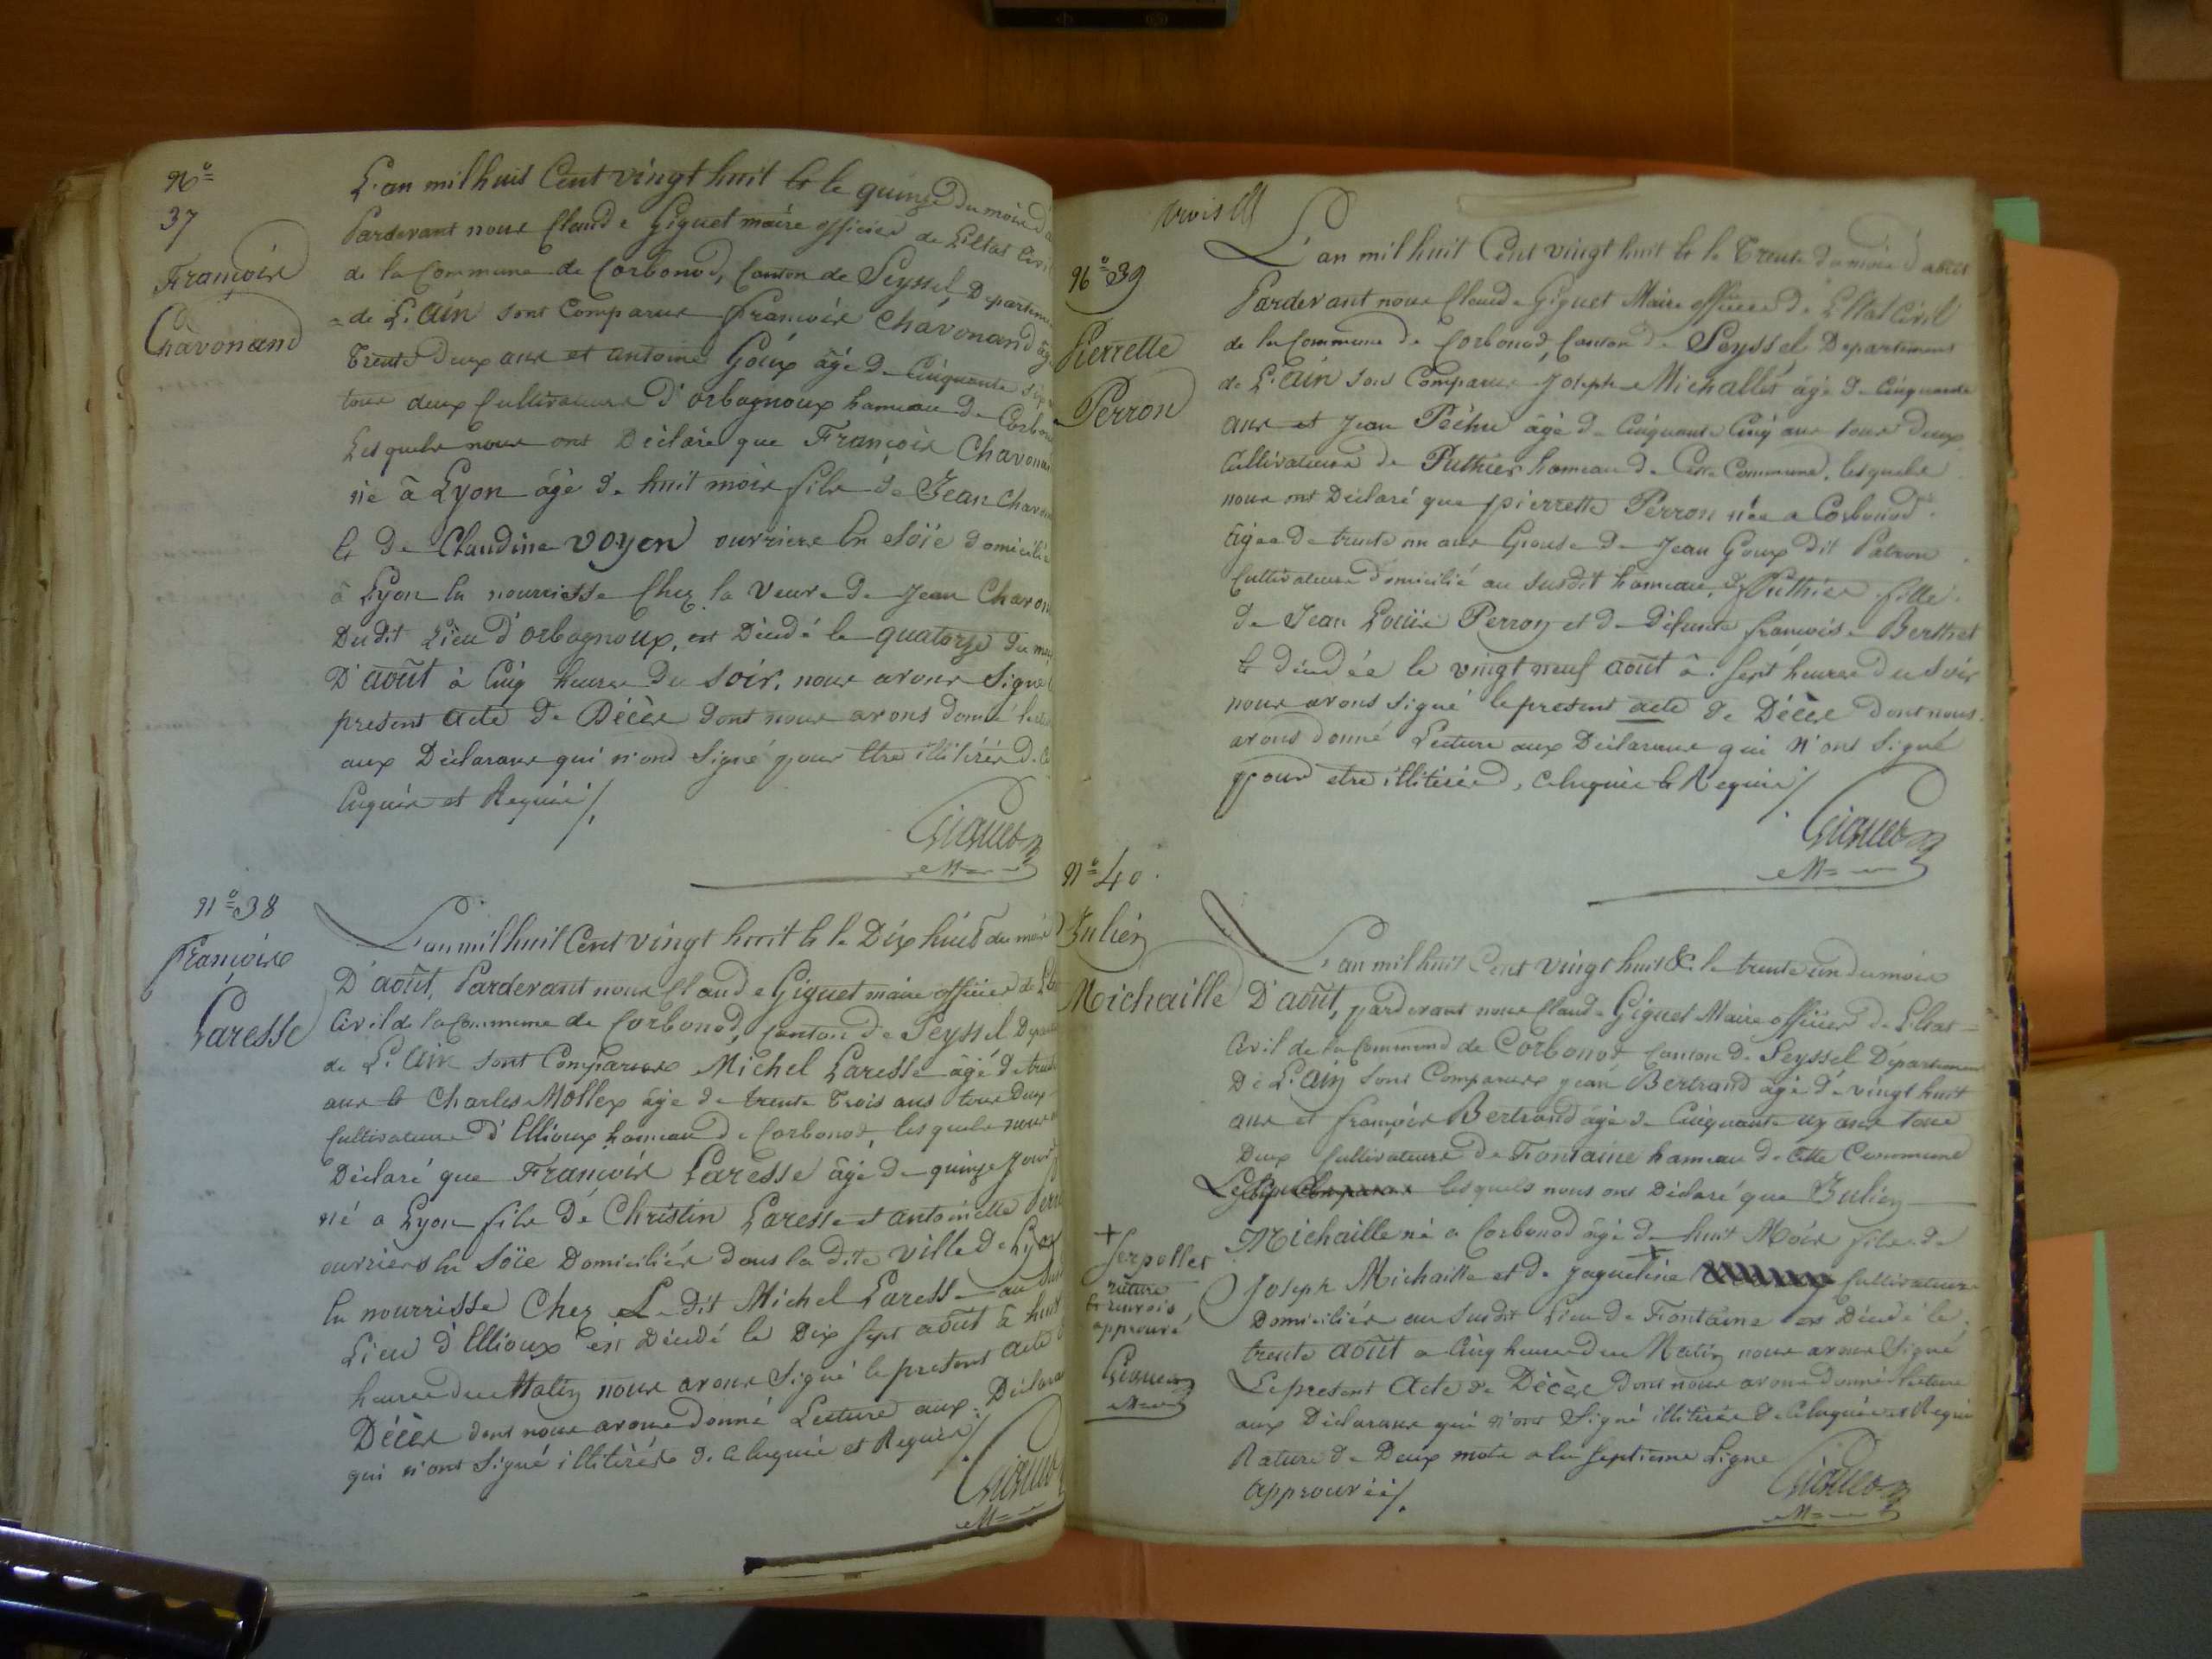 N°
37
François
Chavonand
L'an mil huit Cent vingt huit & le quinze du mois d'a
Pardevant nous Claude Giguet maire officier de L'Etat Civil
de la Commune de Corbonod, Canton de Seyssel, Departeme
= de L'ain sont Comparus François Chavonand âg
trente Deux ans et antoine Goux âgé de Cinquante six
tous deux Cultivateurs D'orbagnoux hameau de Corbon
Lesquels nous ont Déclaré que François Chavonan
né à Lyon âgé de huit mois fils de Jean Chavon
& De Claudine Voyen ouvriers En Soïe domiciliés
à Lyon En nourrisse Chez la Veuve de Jean Chavon
Dudit Lieu d'orbagnoux, est Décédé le quatorze du mois
D'août à Cinq heures Du soir, nous avons Signé l
present acte De Décès dont nous avons donné lect
aux Déclarans qui n'ont Signé pour Etre illitérés De Ce
Enquis et Requis /.
Giguet
M=
N° 38
François
Laresse
L'an mil huit Cent vingt huit & le Dix huit du mois
D'août, Pardevant nous Claude Giguet maire officier de L'Et
Civil de la Commune de Corbonod, Canton de Seyssel Depart
de L'ain sont Comparus Michel Laresse âgé de trente
ans & Charles Mollex âgé de trente Trois ans tous Deux
Cultivateurs d'Ellioux hameau de Corbonod, lesquels nous
Déclaré que François Laresse âgé de quinze Jours
né a Lyon fils De Christin Laresse et antoinette Perr
ouvriers En Soïe Domiciliés dans la dite ville de Lyon
En nourrisse Chez Le dit Michel Laresse au Sus
Lieu d'Ellioux est Décédé le Dix sept août à huit
heures du Matin nous avons Signé le present acte
Décès dont nous avons donné Lecture aux Déclara
qui n'ont Signé illitérés de Ce Enquis et Requis /.
Giguet
M=
N° 39
Pierrette
Perron
L'an mil huit Cent vingt huit & le Trente du mois d'août
Pardevant nous Claude Giguet Maire officier de L'Etat Civil
de la Commune de Corbonod, Canton de Seyssel Departement
de L'ain sont Comparus Joseph Michallet âgé de Cinquante
ans et Jean Pêchu âgé de Cinquante Cinq ans tous deux
Cultivateurs de Puthier hameau de Cette Commune, lesquels
nous ont Déclaré que pierrette Perron née a Corbonod
âgée de trente un ans Epouse de Jean Goux dit Patron
Cultivateurs domicilié au susdit hameau, de Puthier fille
de Jean Louis Perron et de défunte françoise Berthet
& décédée le vingt neuf août à Sept heures du Soir
nous avons signé le present acte de Décès dont nous
avons donné Lecture aux Déclarans qui n'ont Signé
pour etre illitérés de Ce Enquis & Requis /.
Giguet
M=
N° 40
Julien
Michaille
L'an mil huit Cent vingt huit & le trente un du mois
D'août, pardevant nous Claude Giguet Maire officier de L'Etat =
Civil de la Commune de Corbonod Canton de Seyssel Département
De L'ain sont Comparus Jean Bertrand âgé de vingt huit
ans et françois Bertrand âgé de Cinquante un ans tous
Deux Cultivateurs de Fontaine hameau de Cette Commune
lesquels nous ont Déclaré que Julien
Michaille né a Corbonod âgé de huit Mois fils de
Joseph Michaille et de Jaqueline + Cultivateurs
Domiciliés au susdit Lieu de Fontaine est Décédé le
trente août a Cinq heures du Matin nous avons Signé
Le present acte de Décès dont nous avons donné lecture
aux Déclarans qui n'ont Signé illitérés de Ce Enquis et Requis
Rature de Deux mots a la septieme Ligne
approuvée /.
Giguet
M=
+
Serpollet
rature
& renvois
approuvé
Giguet
M=